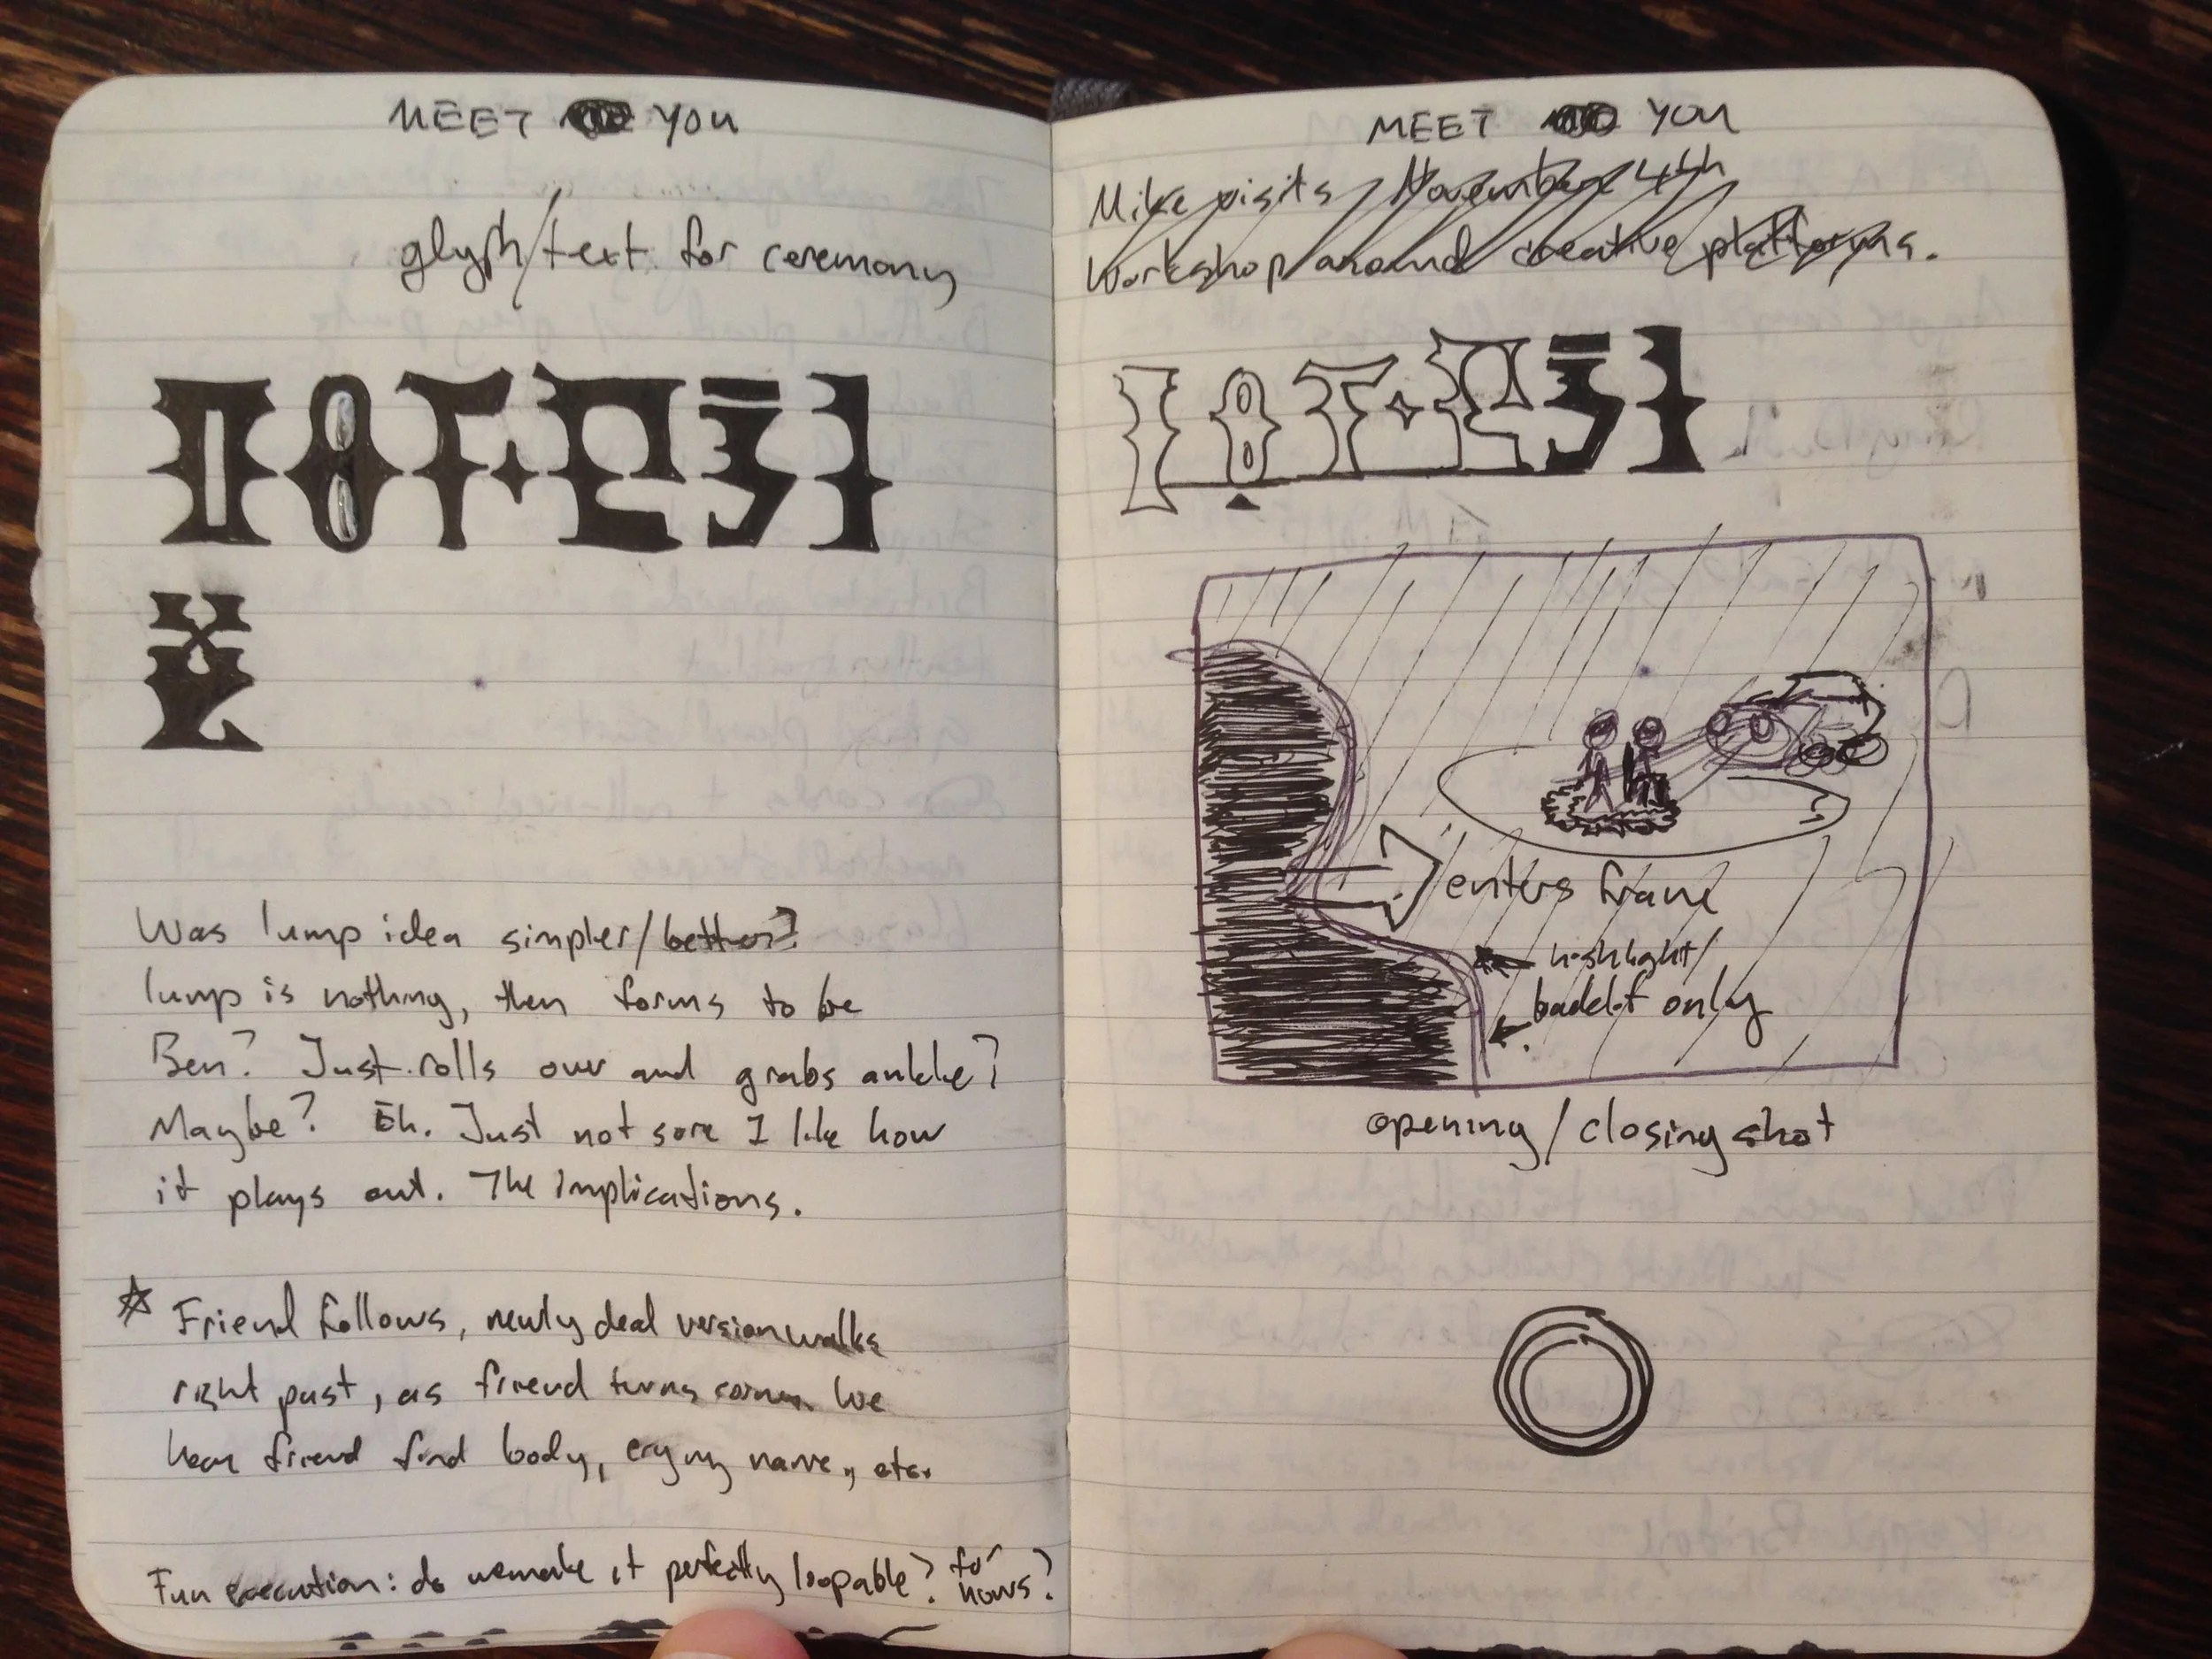 MEET YOU
glyph/text for ceremony
Was lump idea simpler/better?
lump is nothing, then forms to be
Ben? Just rolls over and grabs ankle?
Maybe? Eh. Just not sure I like how
it plays out. The implications.
Friend follows, newly dead version walks
right past, as friend turns corner. We
hear friend find body, crying name, etc.
Fun execution: do we make it perfectly loopable? for
hours?
MEET YOU
Mike visits November 4th
Workshop around creative platforms.
enters frame
highlight/
backlit only
opening/closing shot